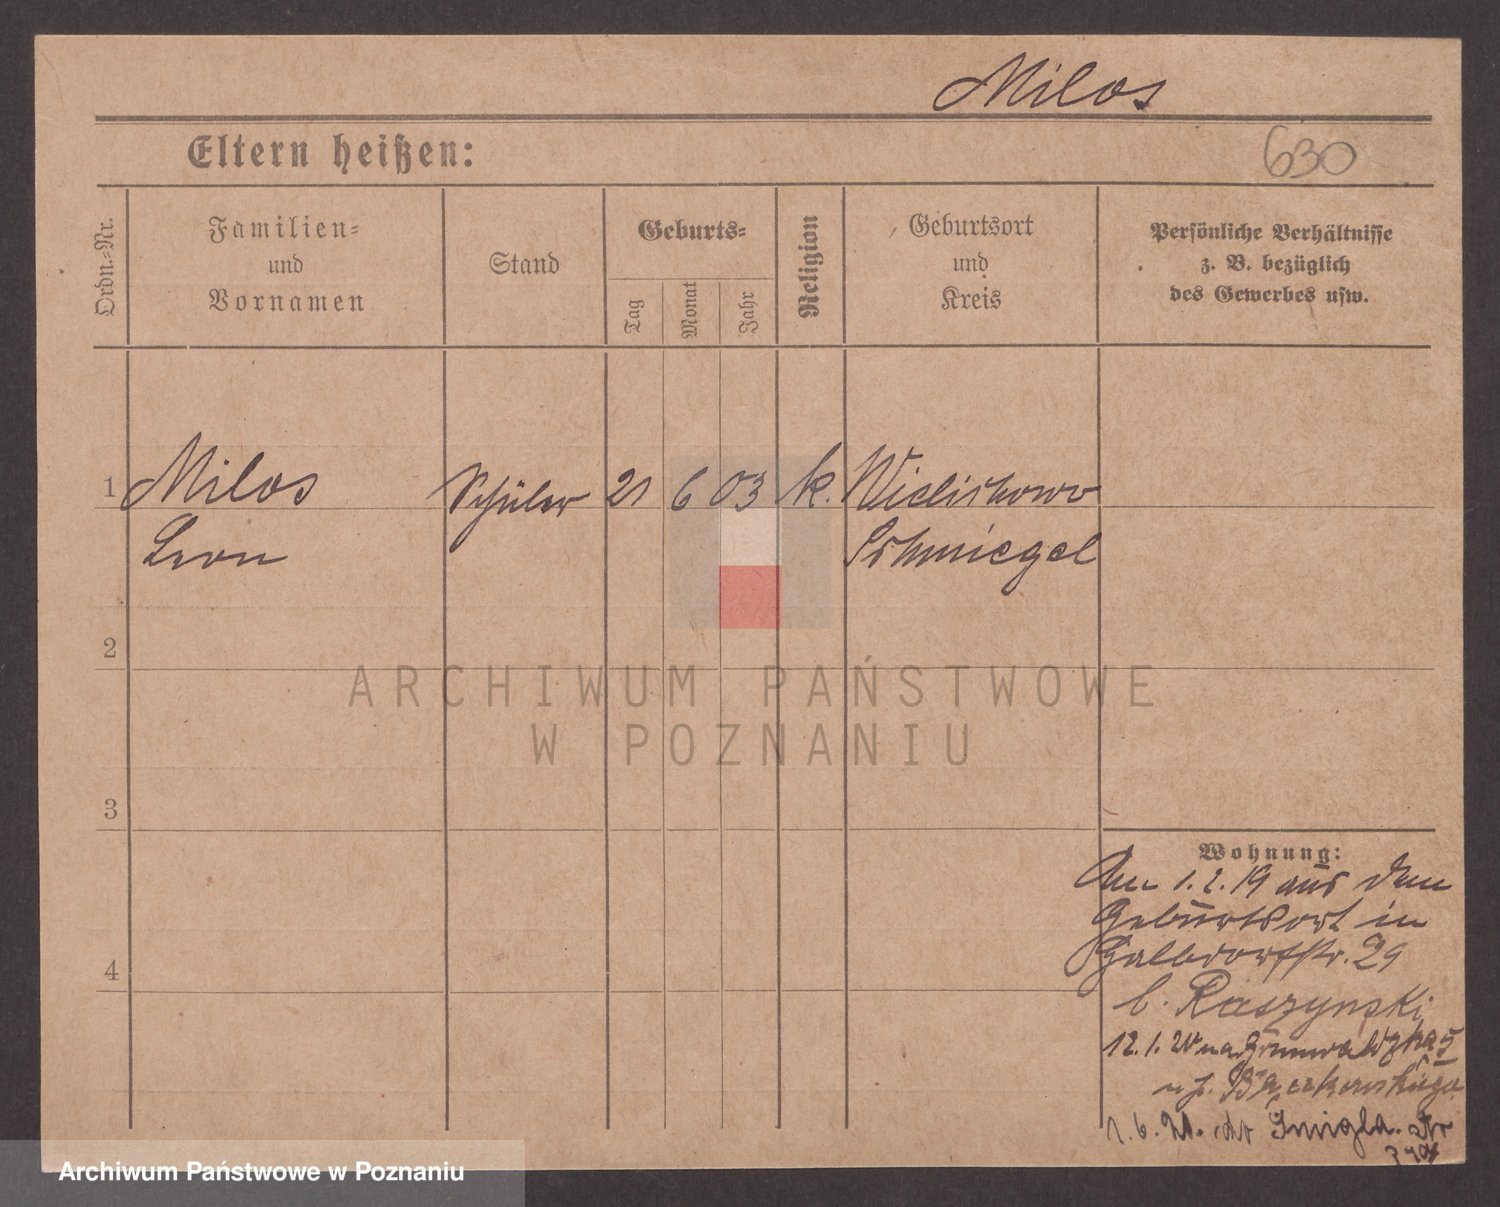 Milos
Eltern heißen:
630
Ordn.-Nr.
Familien-
und
Vornamen
Stand
Geburts-
Tag
Monat
Jahr
Religion
Geburtsort
und
Kreis
Persönliche Verhältnisse
z. B. bezüglich
des Gewerbes usw.
1 Milos Schüler 21 6 03 k. Wielichowo
Leon Schmiegel
2
ARCHIWUM PAŃSTWOWE
W POZNANIU
3
Wohnung:
Am 1.2.19 aus dem
Geburtsort in
29
b. Raszynski
12.1.20 na
u p.
1.6. do Śmigla
4
Archiwum Państwowe w Poznaniu